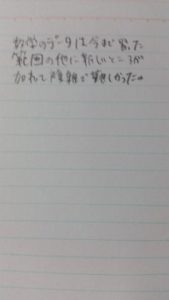 数学のデータは今まで習った
範囲の他に新しいところが
加わて複雑で難しかった。